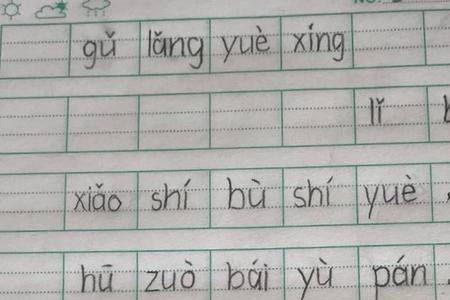 gǔ lǎng yuè xíng
lǐ
xiǎo shí bù shí yuè
hū zuò bái yù pán